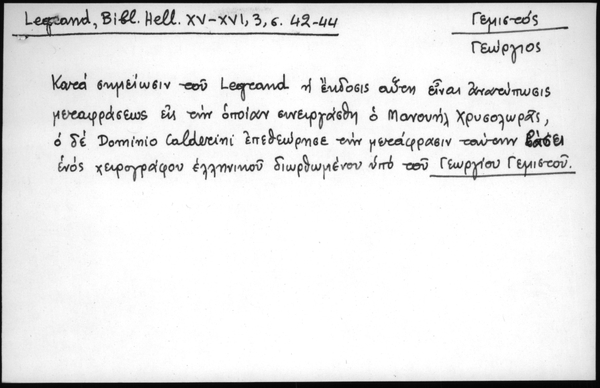 Legrand, Bibl. Hell. XV-XVI, 3, σ. 42-44
Γεμιστός
Γεώργιος
Κατά σημείωσιν τοῦ Legrand ἡ ἔκδοσις αὕτη εἶναι ἀνατύπωσις
μεταφράσεως εἰς τήν ὁποίαν συνειργάσθη ὁ Μανουήλ Χρυσολωρᾶς,
ὁ δέ Dominio Calderini ἐπεθεώρησε τήν μετάφρασιν ταύτην βάσει
ἑνός χειρογράφου ἑλληνικοῦ διωρθωμένου ὑπό τοῦ Γεωργίου Γεμιστοῦ.